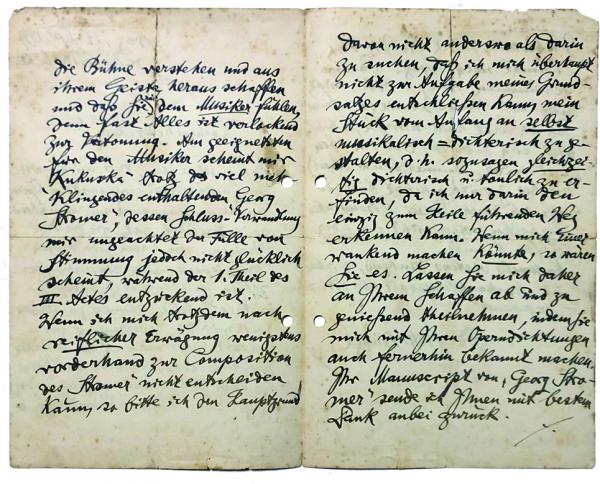 die Bühne verstehen und aus
ihrem Geiste heraus schaffen
und daß Sie dem Musiker fühlen,
denn fast Alles ist verlockend
zur Vertonung. Am geeignetsten
für den Musiker scheint mir
Kukuska trotz des viel mehr
Klingendes enthaltenden Georg
Stromer", dessen Schluss-Verwandlung
mir ungeachtet der Fülle von
Stimmung jedoch nicht glücklich
scheint, während der 1. Theil des
III. Actes entzückend ist.
Wenn ich mich trotzdem nach
reiflicher Erwägung wenigstens
vorderhand zur Composition
des Stromer" nicht entscheiden
kann, so bitte ich den Hauptgrund
davon nicht anderswo als darin
zu suchen, daß ich mich überhaupt
nicht zur Aufgabe meines Grund-
satzes entschließen kann, mein
Stück vom Anfang an selbst
musikalisch=dichterisch zu ge-
stalten, d. h. sozusagen gleichzei-
tig dichterisch u. tonlich zu er-
finden, da ich nur darin den
einzig zum Heile führenden Weg
erkennen kann. Wenn mich Einer
wankend machen könnte, so wären
Sie es. Lassen Sie mich daher
an Ihrem Schaffen ab und zu
genießend theilnehmen, indem Sie
mich mit Ihren Operndichtungen
auch fernerhin bekannt machen.
Ihr Manuscript von „Georg Stro-
mer" sende ich Ihnen mit bestem
Dank anbei zurück.